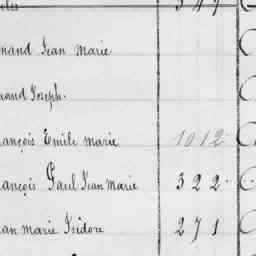 nand Jean Marie
nand Joseph.
ançois Emile Marie 1012
ançois Paul Jean Marie 322
an Marie Isidore 271